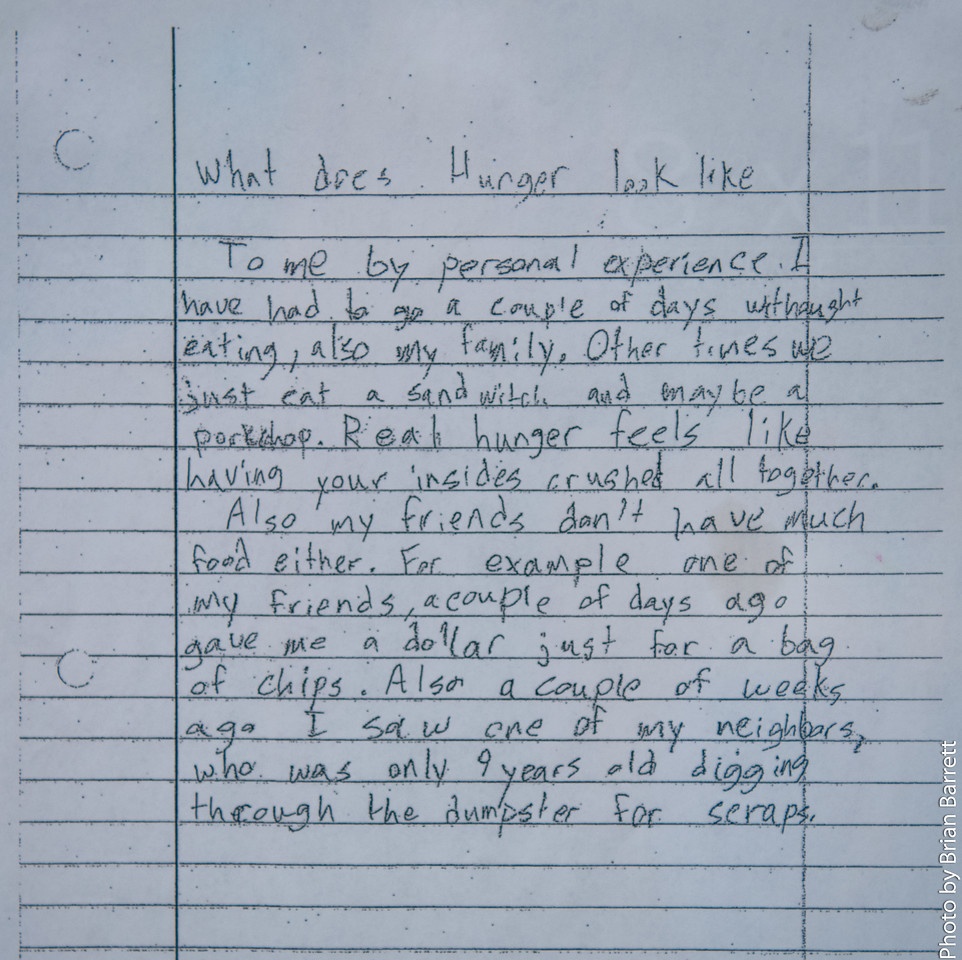 What does Hunger look like
To me by personal experience. I
have had to go a couple of days withought
eating, also my family. Other times we
just eat a sandwitch and maybe a
porkchop. Real hunger feels like
having your insides crushed all together.
Also my friends don't have much
food either. For example one of
my friends, a couple of days ago
gave me a dollar just for a bag
of chips. Also a couple of weeks
ago I saw one of my neighbors,
who was only 9 years old digging
through the dumpster for scraps.
Photo by Brian Barrett